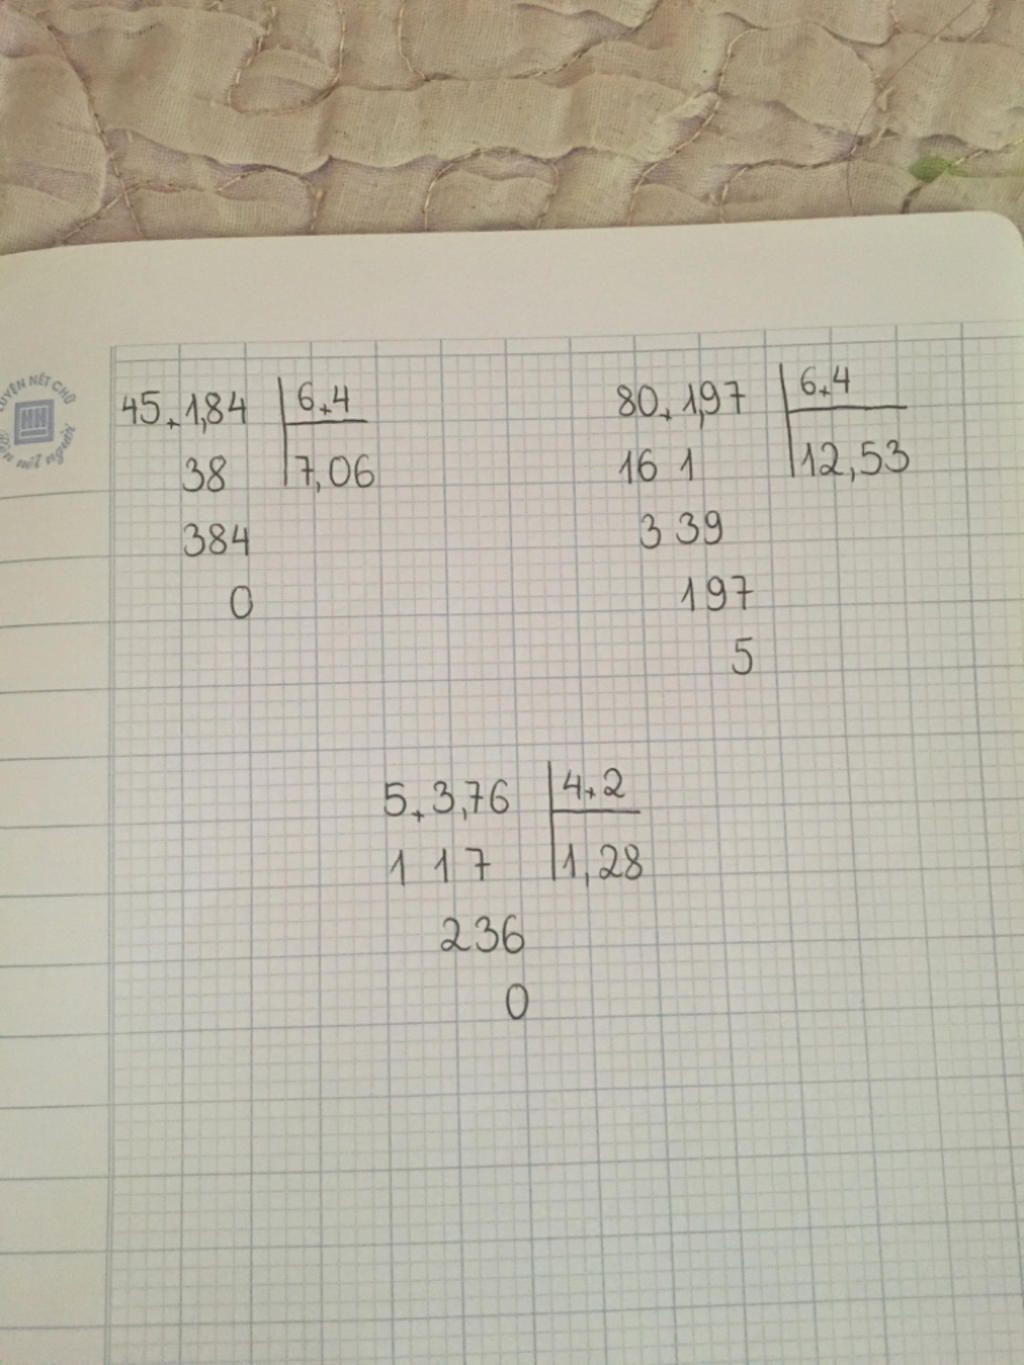 45,1,84 6,4
38 7,06
384
0
80,1,97 6,4
16 1 12,53
3 39
197
5
5,3,76 4,2
1 1 7 1,28
236
0
LUYỆN NÉT CHỮ
HN
nét người